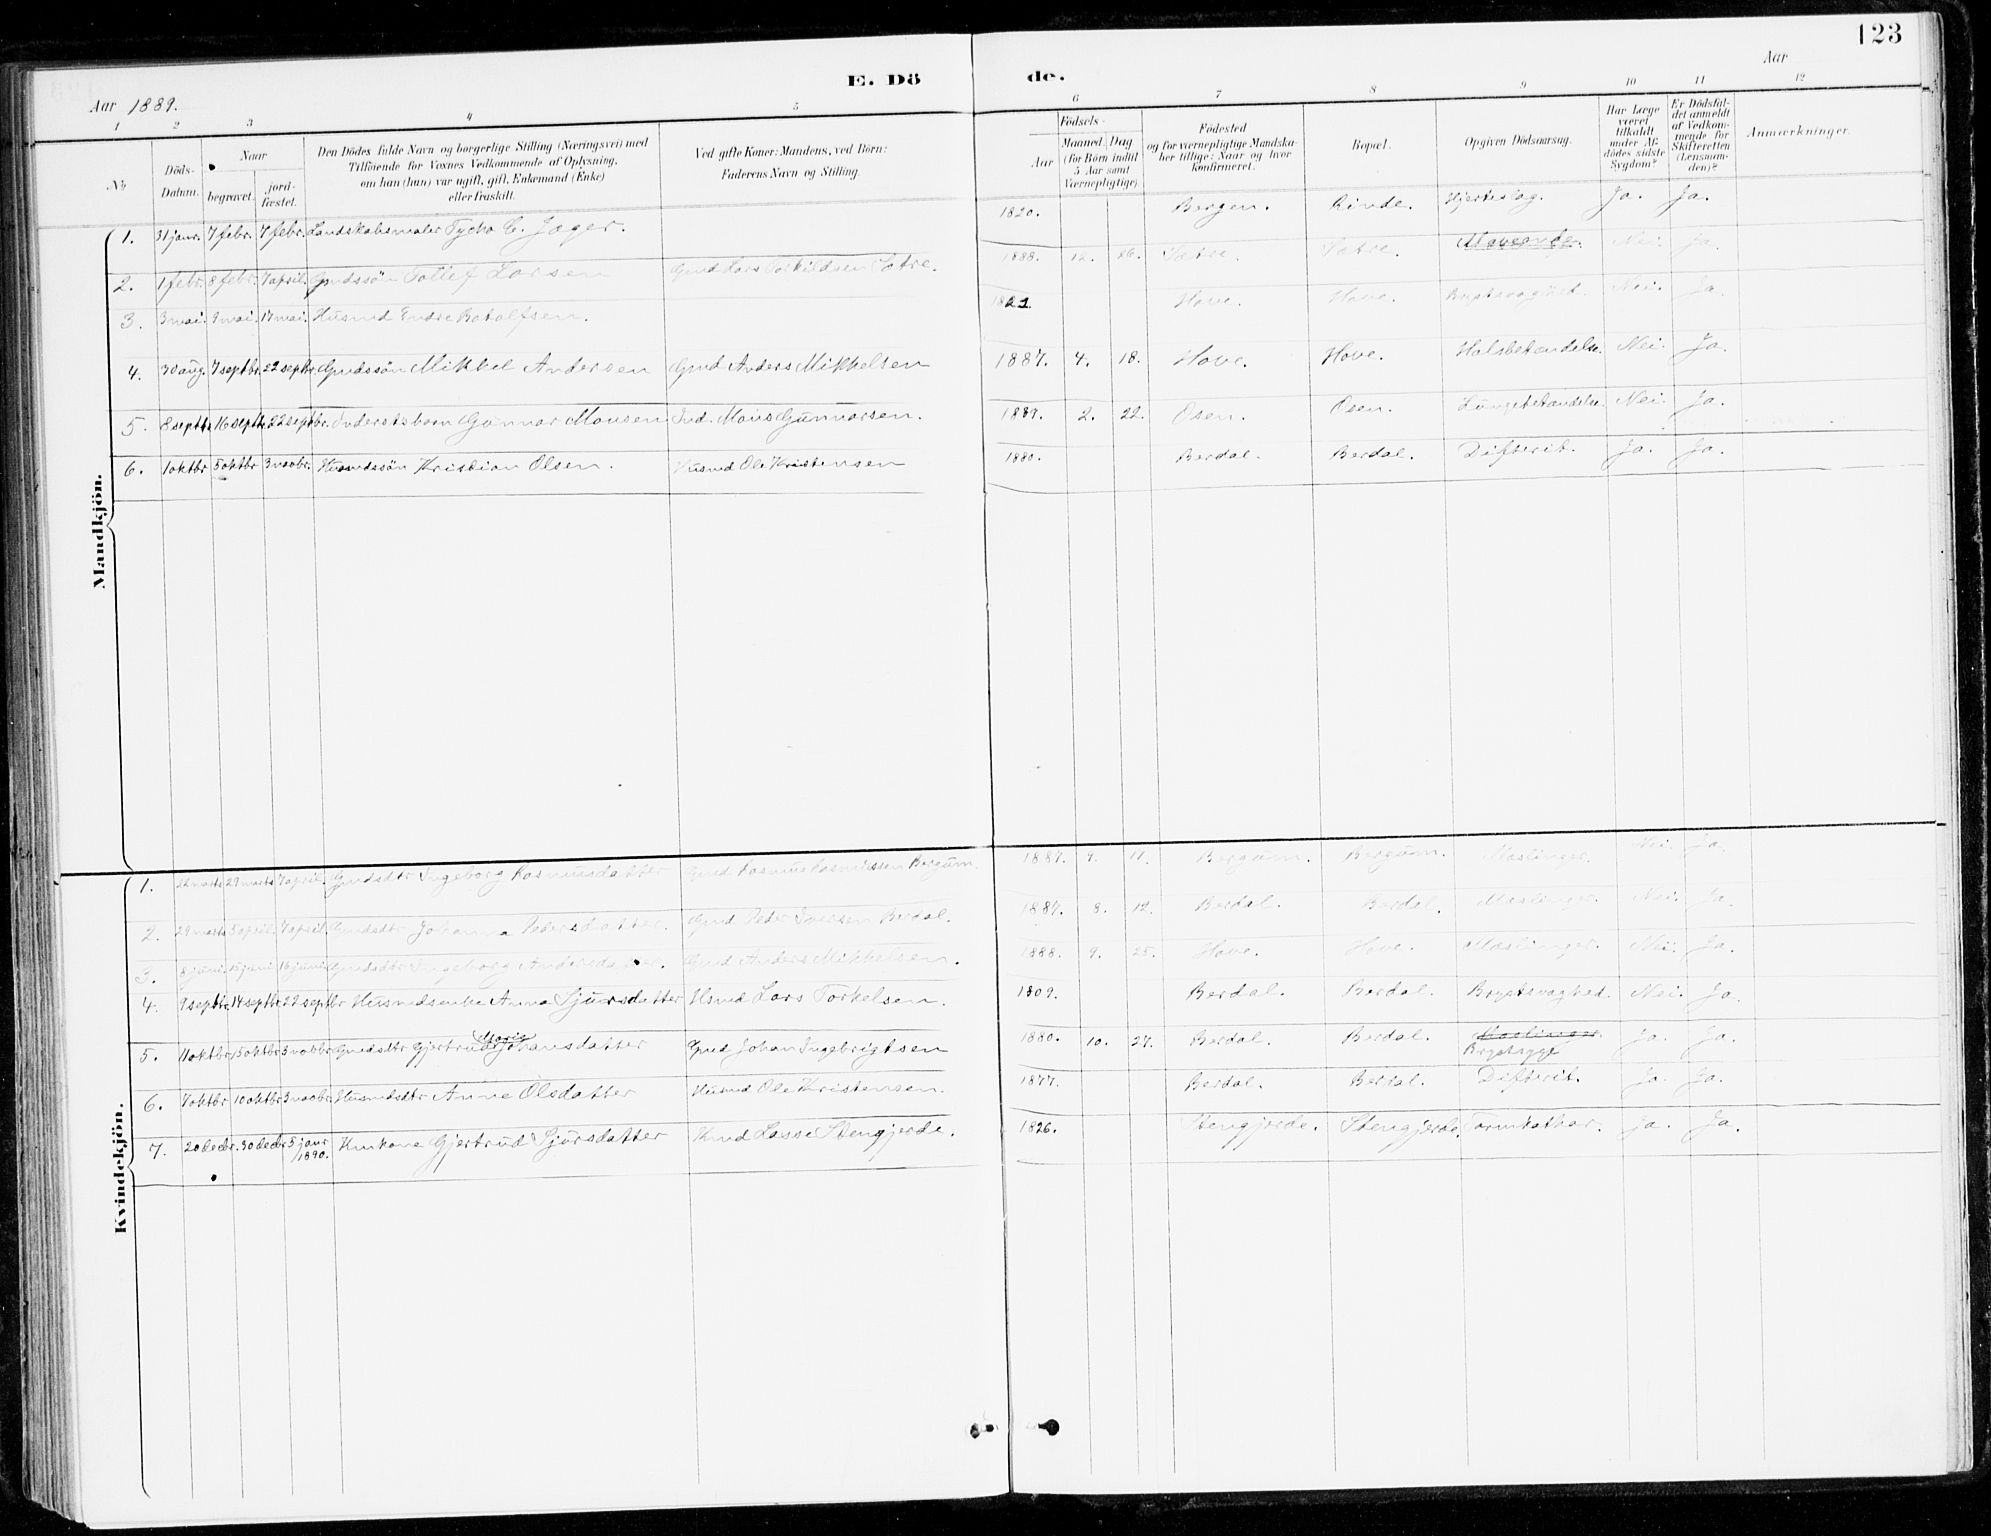 123
E. Dö de.
Aar 1889. Aar
1 2 3 4 5 6 7 8 9 10 11 12
№ Döds-Datum. Naar begravet. jordfæstet. Den Dödes fulde Navn og borgerlige Stilling (Næringsvei) med Tilföiende for Voxnes Vedkommende af Oplysning, om han (hun) var ugift, gift, Enkemand (Enke) eller fraskilt. Ved gifte Koner: Mandens, ved Börn: Faderens Navn og Stilling. Födsels- Aar Maaned. Dag (for Börn indtil 5 Aar samt Værnepligtige) Födested og for værnepligtige Mandskaber tillige: Naar og hvor konfirmeret. Bopæl. Opgiven Dödsaarsag. Har Læge været tilkaldt under Afdödes sidste Sygdom? Er Dödsfaldet anmeldt af Vedkommende for Skifteretten (Lensmanden)? Anmærkninger.
Mandkjön.
1. 31 janr. 7 febr. 7 febr. Landskabsmaler Tycho C. Jæger. 1820. Bergen. Rinde. Hjerteslag. Ja. Ja.
2. 1 febr. 8 febr. 7 april. Gmdssön Tollef Larsen Gmd Lars Torkildsen Sætre. 1888. 12. 26. Sætre. Sætre. Nei. Ja.
3. 3 mai. 9 mai. 17 mai. Husmd Endre Botolfsen. 1821. Hove. Hove. Brystsvaghed. Nei. Ja.
4. 30 aug. 7 septbr. 22 septbr. Gmdssön Mikkel Andersen Gmd Anders Mikkelsen 1887. 4. 18. Hove. Hove. Halsbetændelse. Nei. Ja.
5. 8 septbr. 16 septbr. 22 septbr. Inderstsbarn Gunnar Monsen Ind. Mons Gunnarsen. 1889. 2. 22. Osen. Osen. Lungebetændelse. Nei. Ja.
6. 1 oktbr 5 oktbr 3 novbr. Husmdssön Kristian Olsen. Husmd Ole Kristensen 1880. Berdal. Berdal. Difterit. Ja. Ja.
Kvindekjön.
1. 22 marts 29 marts 7 april. Gmdsdtr Ingeborg Rasmusdatter Gmd Rasmus Rasmussen Bergum 1887. 9. 11. Bergum. Bergum. Mæslinger. Nei. Ja.
2. 29 marts 5 april. 7 april. Gmdsdtr Johanna Pedersdatter. Gmd Peder Iversen Berdal. 1887. 8. 12. Berdal. Berdal. Mæslinger. Nei. Ja.
3. 8 juni. 15 juni 16 juni Gmdsdtr Ingeborg Andersdatter. Gmd Anders Mikkelsen. 1888. 9. 25. Hove. Hove. Mæslinger. Nei. Ja.
4. 9 septbr. 14 septbr. 22 septbr Husmdsenke Anna Sjursdatter Husmd Lars Torkelsen. 1809. Berdal. Berdal. Brystsvaghed. Nei. Ja.
5. 11 oktbr. 15 oktbr. 3 novbr. Gmdsdtr Gjertrud Marie Johansdatter Gmd Johan Ingebrigtsen 1880. 10. 27. Berdal. Berdal. Mæslinger. Brystsyge Ja. Ja.
6. 7 oktbr. 10 oktbr. 3 novbr. Husmdsdtr Anne Olsdatter Husmd Ole Kristensen. 1877. Berdal. Berdal. Difterit. Ja. Ja.
7. 20 decbr. 30 decbr. 5 janr 1890. Kmkone Gjertrud Sjursdatter Kmd Lasse Stengjerde. 1826. Stengjerde. Stengjerde. Tarmkathar. Ja. Ja.